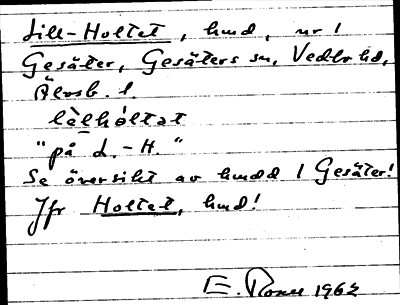 Lill-Holtet, hmd, nr 1
Gesäter, Gesäters sn, Vedbo hd,
Älvsb. l.
lı̀lhòltət
"på L.-H."
Se översikt av hmdd i Gesäter!
Jfr Holtet, hmd!
E. 1962